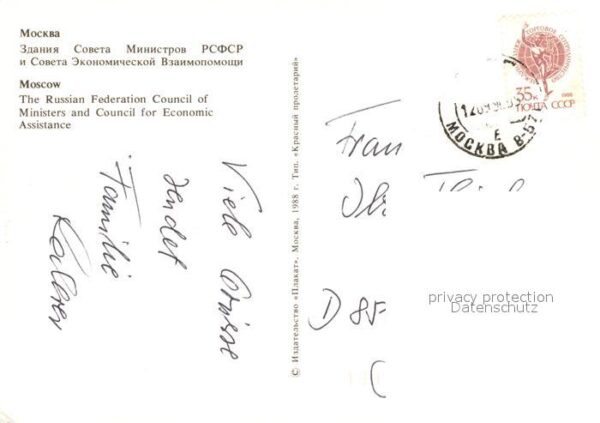 Москва
Здания Совета Министров РСФСР
и Совета Экономической Взаимопомощи
Moscow
The Russian Federation Council of
Ministers and Council for Economic
Assistance
Viele Grüsse
sendet
Familie
© Издательство «Плакат». Москва, 1988 г. Тип. «Красный пролетарий»
35к
1988
ПОЧТА СССР
МОСКВА
Е
Frau
D 85
privacy protection
Datenschutz